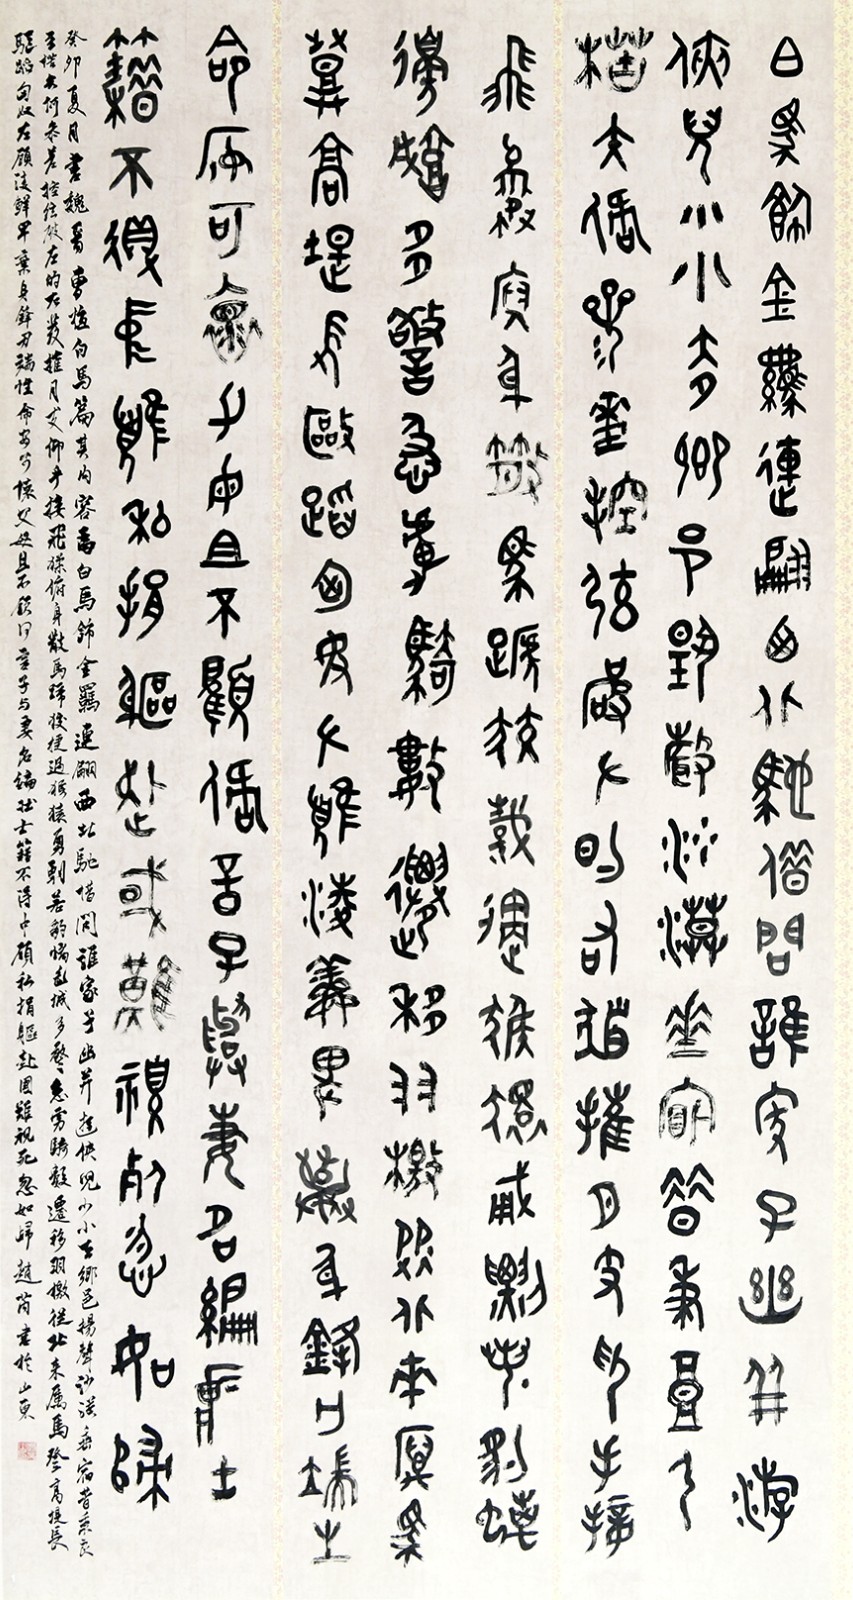 白馬飾金羈連翩西北馳借問誰家子幽并游
俠兒少小去鄉邑揚聲沙漠垂宿昔秉良弓
楛矢何參差控弦破左的右發摧月支仰手接
飛猱俯身散馬蹄狡捷過猴猿勇剽若豹螭
邊城多警急虜騎數遷移羽檄從北來厲馬
登高堤長驅蹈匈奴左顧凌鮮卑棄身鋒刃端性
命安可懷父母且不顧何言子與妻名編壯士
籍不得中顧私捐軀赴國難視死忽如歸
癸卯夏月書魏晉曹植白馬篇其內容為白馬飾金羈連翩西北馳借問誰家子幽并遊俠兒少小去鄉邑揚聲沙漠垂宿昔秉良
弓楛矢何參差控弦破左的右發摧月支仰手接飛猱俯身散馬蹄狡捷過猴猿勇剽若豹螭邊城多警急虜騎數遷移羽檄從北來厲馬登高堤長
驅蹈匈奴左顧凌鮮卑棄身鋒刃端性命安可懷父母且不顧何言子與妻名編壯士籍不得中顧私捐軀赴國難視死忽如歸 趙芮書於山東